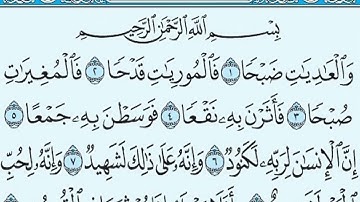 بِسْمِ ٱللَّهِ ٱلرَّحْمَٰنِ ٱلرَّحِيمِ
وَٱلْعَٰدِيَٰتِ ضَبْحًا ١ فَٱلْمُورِيَٰتِ قَدْحًا ٢ فَٱلْمُغِيرَٰتِ
صُبْحًا ٣ فَأَثَرْنَ بِهِۦ نَقْعًا ٤ فَوَسَطْنَ بِهِۦ جَمْعًا ٥
إِنَّ ٱلْإِنسَٰنَ لِرَبِّهِۦ لَكَنُودٌ ٦ وَإِنَّهُۥ عَلَىٰ ذَٰلِكَ لَشَهِيدٌ ٧ وَإِنَّهُۥ لِحُبِّ